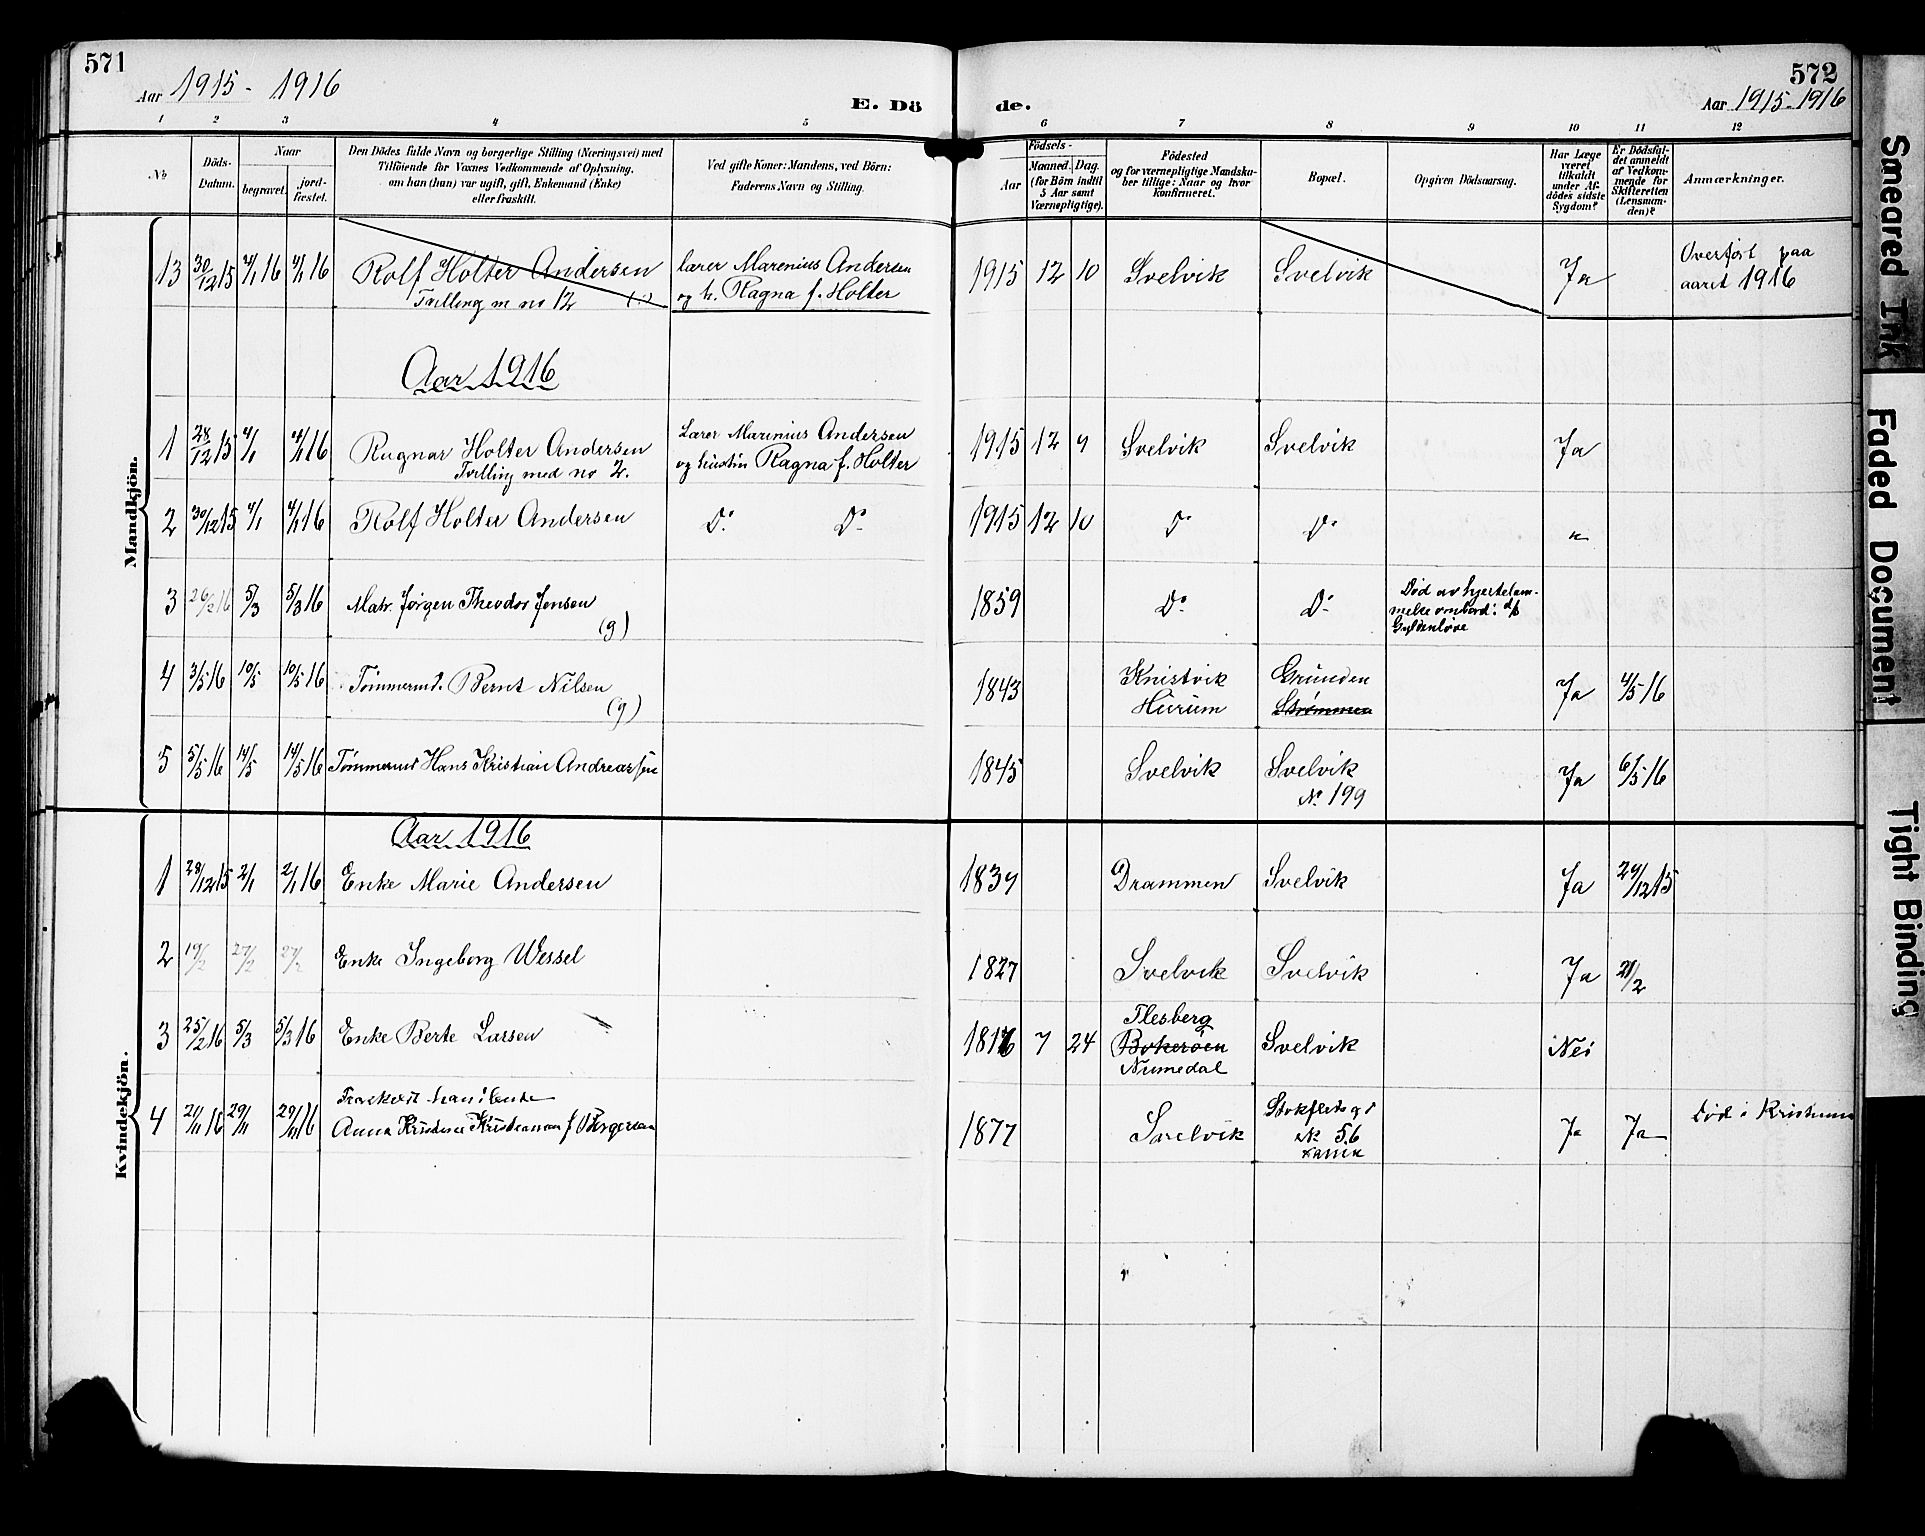 571
Aar 1915 - 1916
E. Dö
de.
572
Aar 1915-1916
1 2 3 4 5 6 7 8 9 10 11 12
No
Döds-
Datum.
Naar
begravet.
jord-
fæstet.
Den Dödes fulde Navn og borgerlige Stilling (Næringsvei) med
Tilföiende for Voxnes Vedkommende af Oplysning,
om han (hun) var ugift, gift, Enkemand (Enke)
eller fraskilt.
Ved gifte Koner: Mandens, ved Börn:
Faderens Navn og Stilling.
Födsels-
Aar
Maaned. Dag.
(for Börn indtil
5 Aar samt
Værnepligtige).
Födested
og for værnepligtige Mandska-
ber tillige: Naar og hvor
konfirmeret.
Bopæl.
Opgiven Dödsaarsag.
Har Læge
været
tilkaldt
under Af-
dödes sidste
Sygdom?
Er Dödsfal-
det anmeldt
af Vedkom-
mende for
Skifteretten
(Lensman-
den)?
Anmærkninger.
Mandkjön.
13 30/12 15 4/1 16 4/1 16 Rolf Holter Andersen
Tvilling m no 12
lærer Marenius Andersen
og h. Ragna f. Holter
1915 12 10 Svelvik Svelvik Ja
Overført paa
aaret 1916
Aar 1916
1 28/12 15 4/1 4/1 16 Ragnar Holter Andersen
Tvilling med no 2.
Lærer Marinius Andersen
og hustru Ragna f. Holter
1915 12 9 Svelvik Svelvik Ja
2 30/12 15 4/1 4/1 16 Rolf Holter Andersen Do Do 1915 12 10 Do Do "
3 26/2 16 5/3 5/3 16 Matr. Jørgen Theodor Jensen
(g)
1859 Do Do
Død av hjertelam-
melse ombord i d/s
Gyldenløve
4 3/5 16 10/5 10/5 16 Tømmermd. Bernt Nilsen
(g)
1843 Knistvik
Hurum
Grunden
Strømmen
Ja 4/5 16
5 5/5 16 14/5 14/5 16 Tømmermd Hans Kristian Andreassen
1845 Svelvik Svelvik
No 199
Ja 6/5 16
Kvindekjön.
Aar 1916
1 28/12 15 2/1 2/1 16 Enke Marie Andersen 1839 Drammen Svelvik Ja 29/12 15
2 19/2 27/2 27/2 Enke Ingeborg Wessel 1827 Svelvik Svelvik Ja 21/2
3 25/2 16 5/3 5/3 16 Enke Berte Larsen 1816 7 24
Flesberg
Bokerøen
Numedal
Svelvik Nei
4 21/11 16 29/11 29/11 16
Fraskilt handlende
Anna Kristine Kristiansen f. Børgersen
1877 Svelvik
No 56
Ja Ja
Død i Kristiania
Smeared Ink
Faded Document
Tight Binding